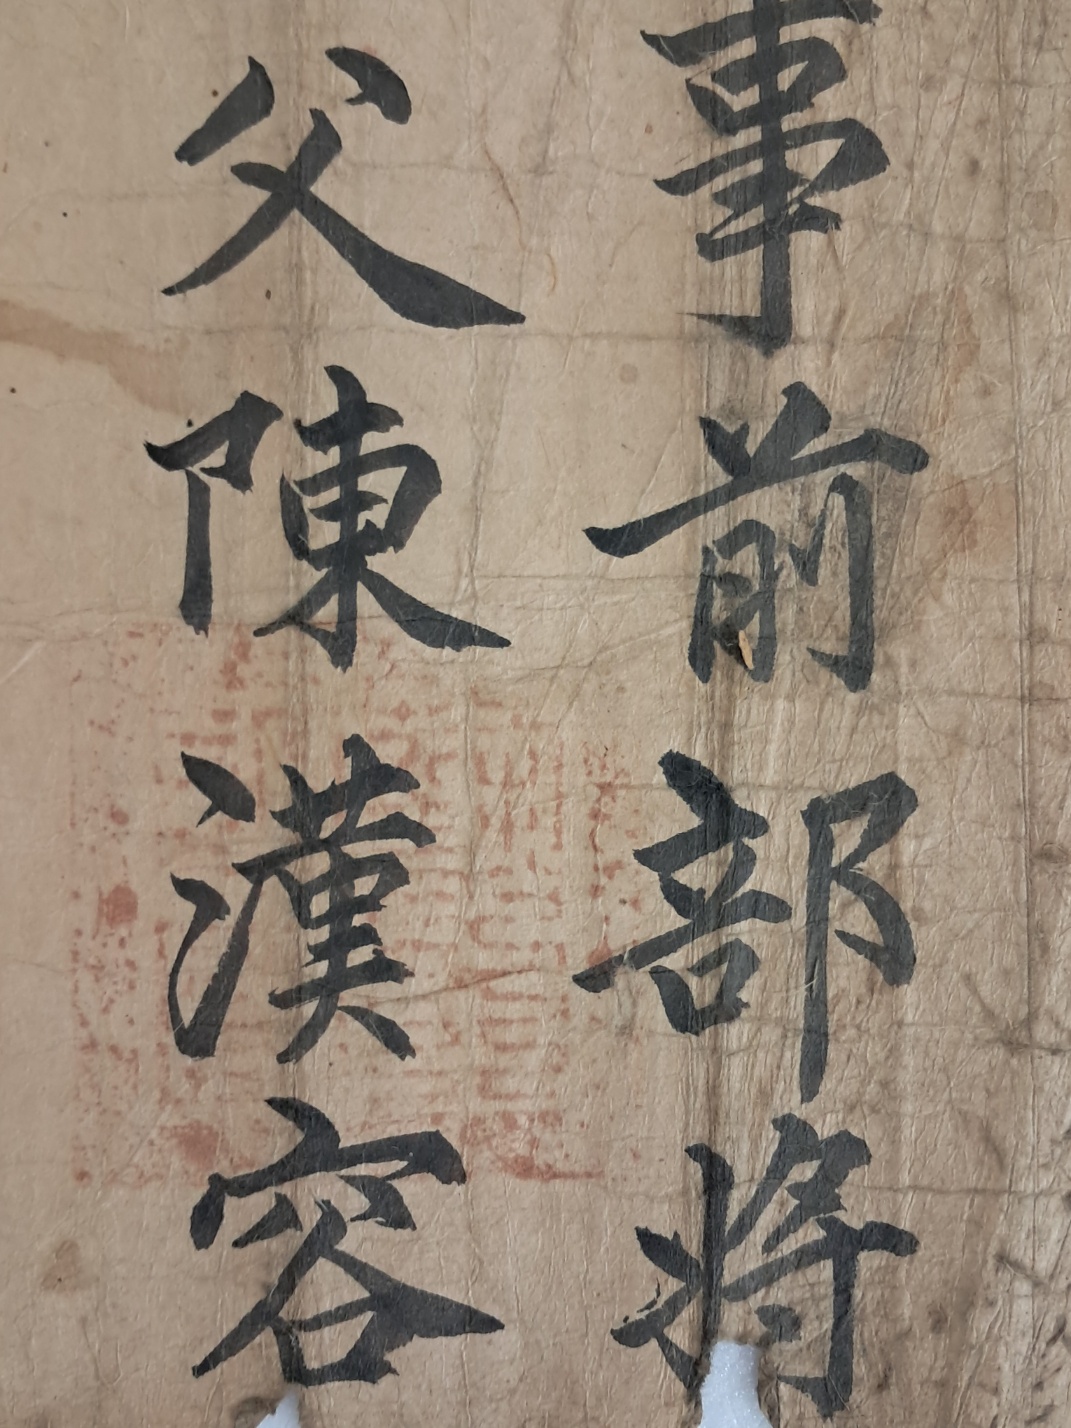 事前部將
父陳漢容